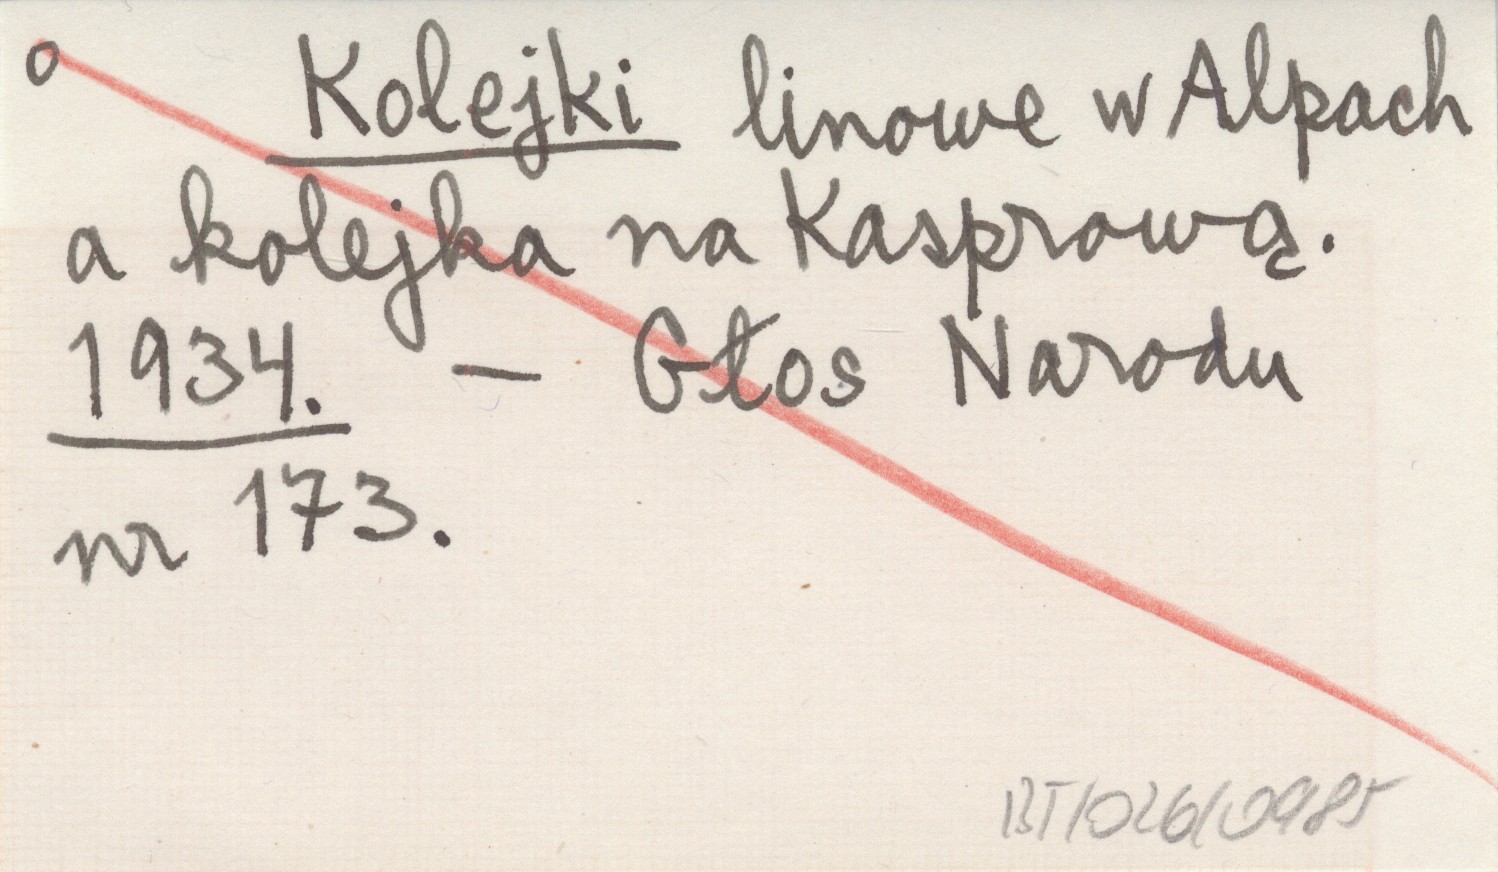 o Kolejki linowe w Alpach
a kolejka na Kasprową.
1934. — Głos Narodu
nr 173.
BT/026/0985